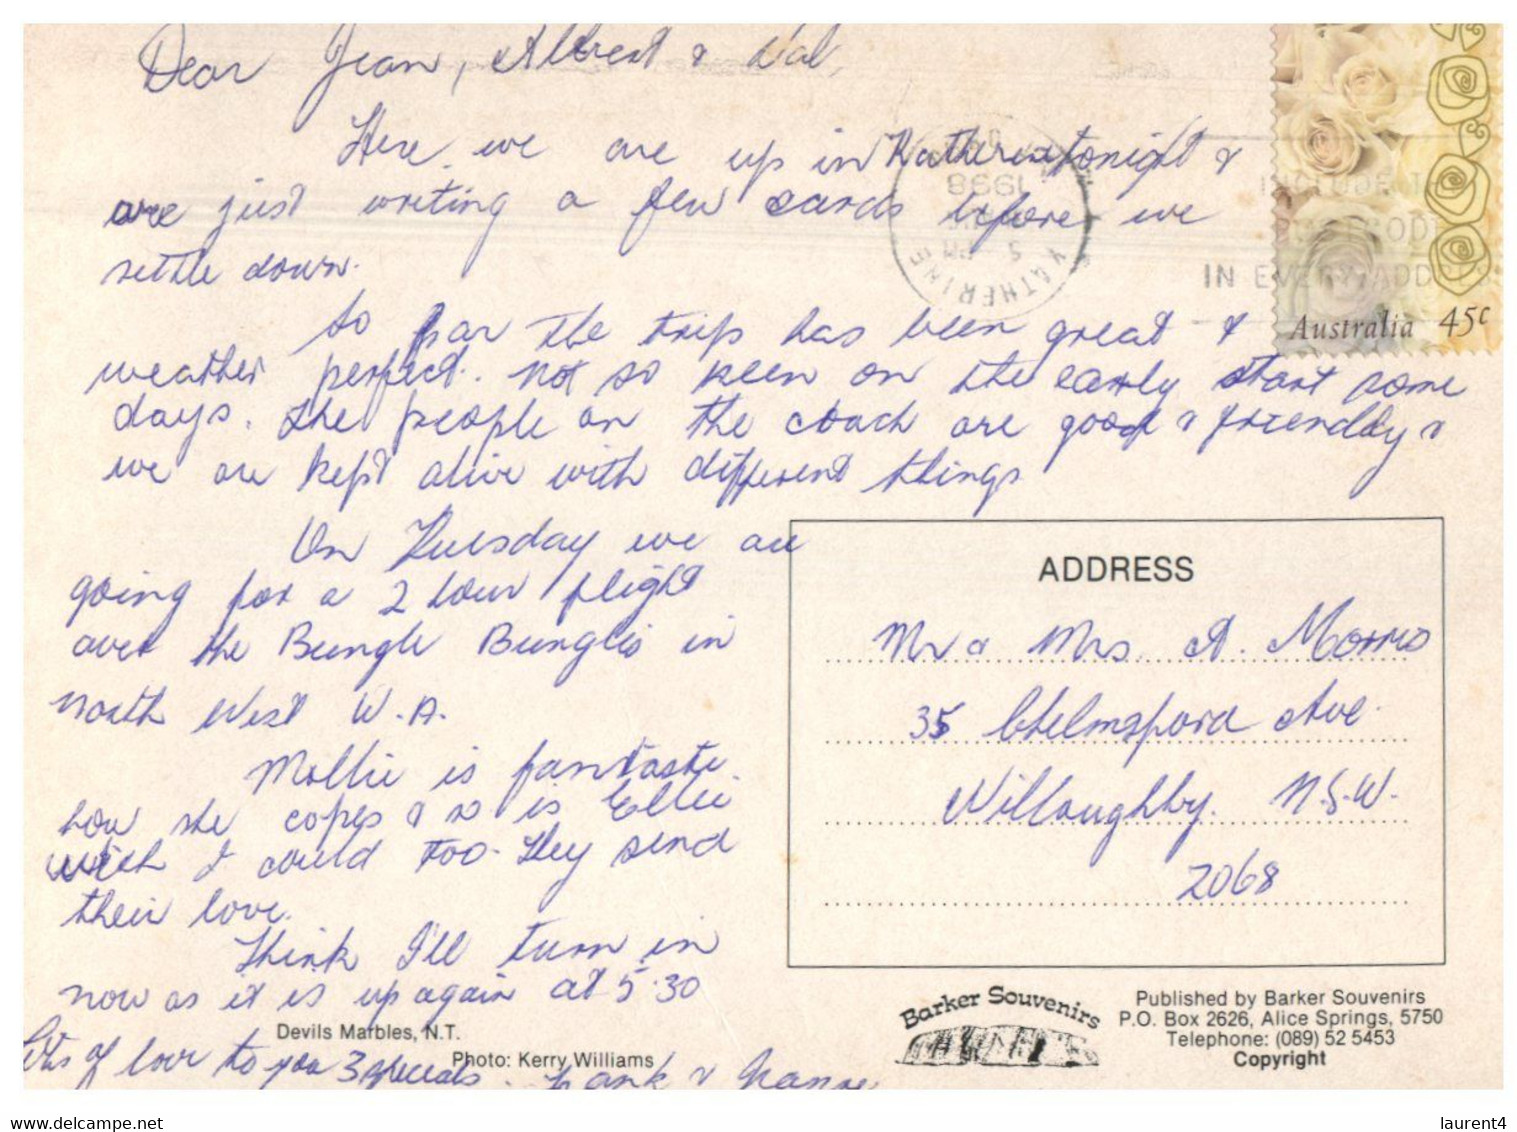 Dear Jean, Albert & Val,
Here we are up in Katherine tonight &
are just writing a few cards before we
settle down.
So far the trip has been great &
weather perfect. Not so keen on the early start some
days. The people on the coach are good & friendly &
we are kept alive with different things
On Tuesday we are
going for a 2 hour flight
over the Bungle Bungles in
North West W.A.
Mollie is fantastic
how she copes & so is Ellie
wish I could too. They send
their love.
Think I'll turn in
now as it is up again at 5.30
Lots of love to you 3 specials.
Devils Marbles, N.T.
Photo: Kerry Williams
1998
KATHERINE
IN EVERY ADDRESS
Australia 45c
ADDRESS
Mr & Mrs A. Morris
35 Chelmsford Ave.
Willoughby. N.S.W.
2068
Barker Souvenirs
Published by Barker Souvenirs
P.O. Box 2626, Alice Springs, 5750
Telephone: (089) 52 5453
Copyright
www.delcampe.net
laurent4